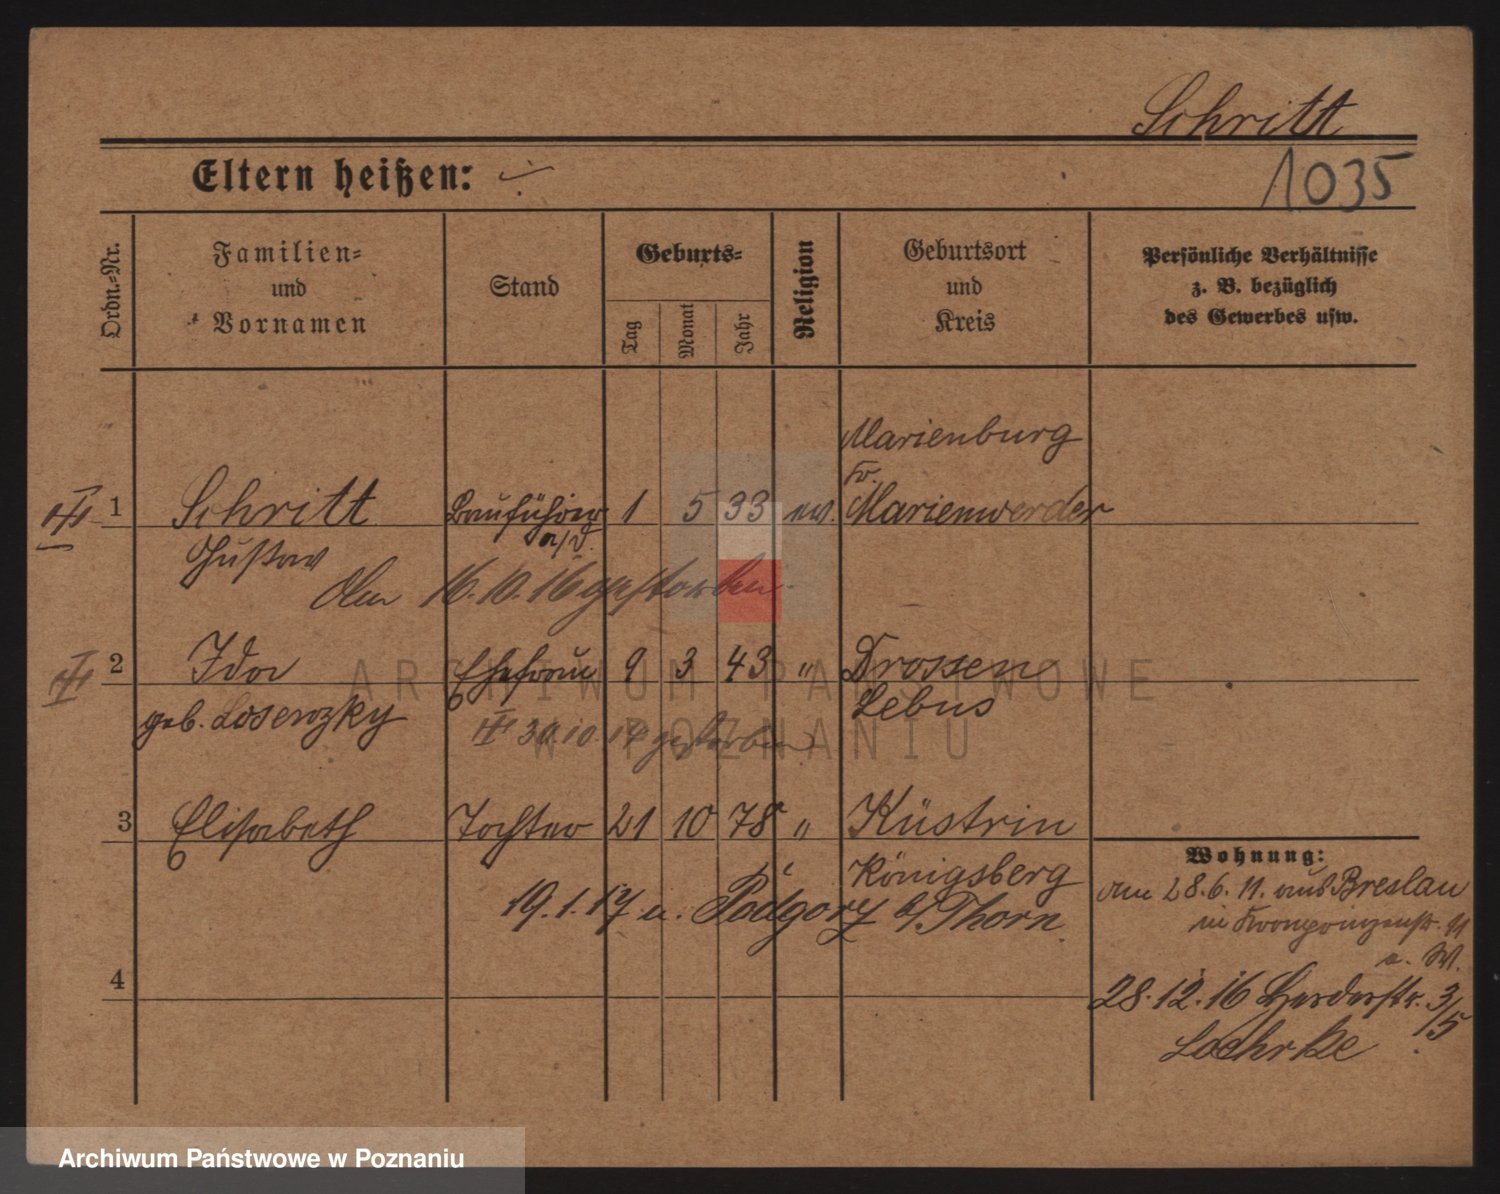 Schritt
Eltern heißen: ÷
1035
Ordn.-Nr.
Familien-
und
Vornamen
Stand
Geburts-
Tag
Monat
Jahr
Religion
Geburtsort
und
Kreis
Persönliche Verhältnisse
z. B. bezüglich
des Gewerbes usw.
Marienburg
Kr.
1 Schritt Bauführer 1 5 33 ev. Marienwerder
a/D.
Gustav
Am 16.10.16 gestorben
2 Ida Ehefrau 9 3 43 " Drossen
geb. Lebus
30.10.14 gestorben
3 Elisabeth Tochter 21 10 78 " Küstrin
Königsberg
19.1.17 n. Podgorz b/Thorn
4
Wohnung:
am 28.6.11. aus Breslau
in Kronprinzenstr. 11
a. W.
28.12.16 Herderstr. 3/5
ARCHIWUM PAŃSTWOWE
W POZNANIU
Archiwum Państwowe w Poznaniu